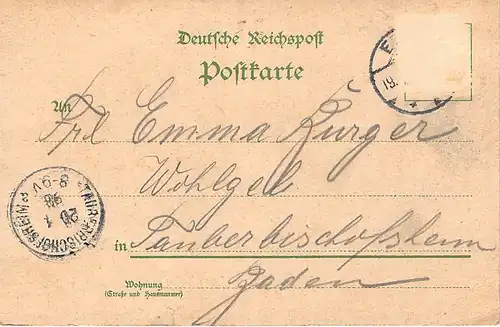 Deutsche Reichspost
Postkarte
An
Frl Emma Kurger
Wohlgel
in Tauberbischofsheim
Baden
Wohnung
(Straße und Hausnummer)
TAUBERBISCHOFSHEIM
20 1
98
8-9V
19.